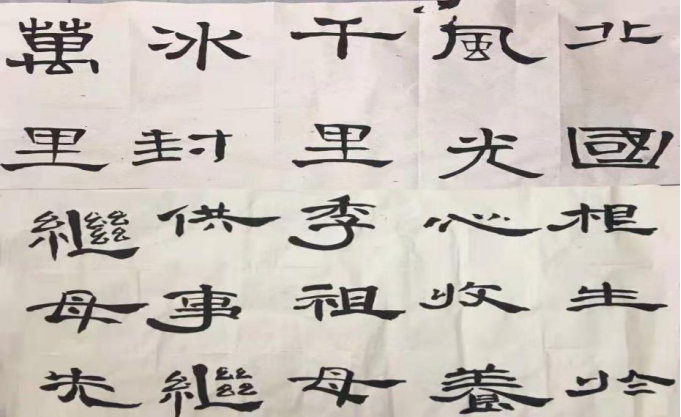 北國
風光
千里
冰封
萬里
根生於
心收養
季祖母
供事繼
繼母先